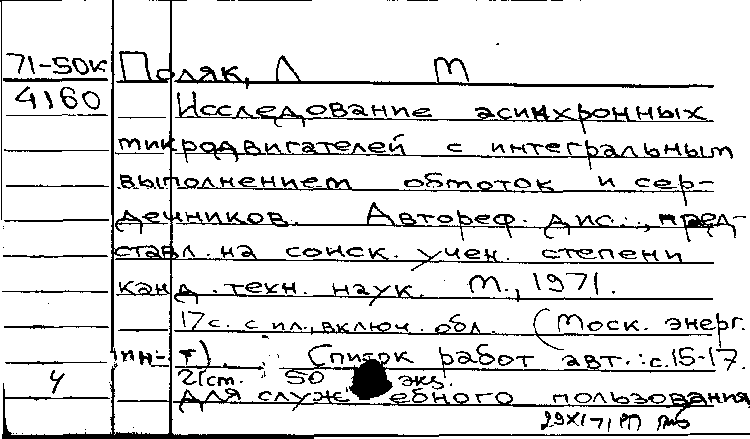 71-50к Поляк, Л М
4160 Исследование асинхронных
микродвигателей с интегральным
выполнением обмоток и сер-
дечников. Автореф. дис., пред-
ставл. на соиск. учен. степени
канд. техн. наук. М., 1971.
17 с. с ил., включ. обл. (Моск. энерг.
ин-т). Список работ авт.: с. 15-17.
21 ст. 50 экз.
4 Для служебного пользования
29X171